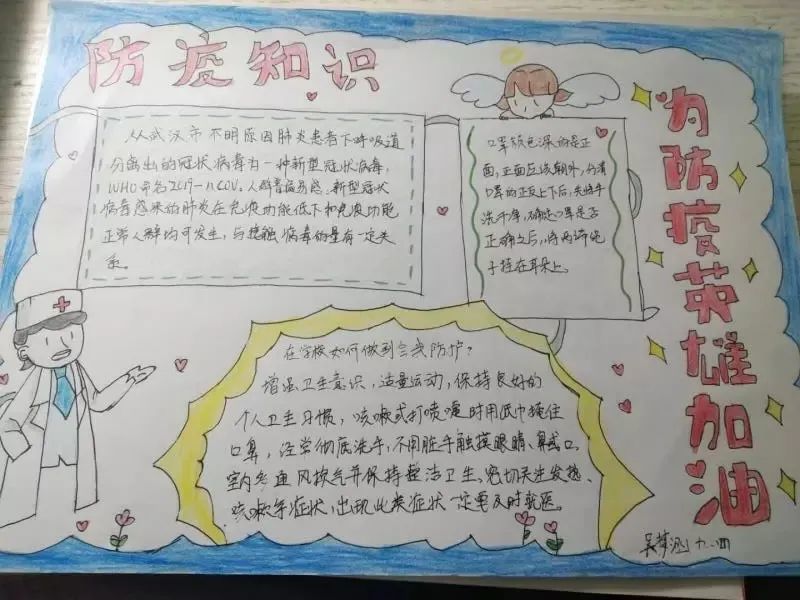 防疫知识
从武汉市不明原因肺炎患者下呼吸道
分离出的冠状病毒为一种新型冠状病毒,
WHO命名2019-nCOV,人群普遍易感.新型冠状
病毒感染的肺炎在免疫功能低下和免疫功能
正常人群均可发生,与接触病毒的量有一定关
系。
口罩颜色深的是正
面,正面应该朝外,分清
口罩的正反上下后,先将手
洗干净,确定口罩是否
正确之后,将两端绳
子挂在耳朵上。
为防疫英雄加油
在学校如何做到自我防护?
增强卫生意识,适量运动,保持良好的
个人卫生习惯,咳嗽或打喷嚏时用纸巾掩住
口鼻,经常彻底洗手,不用脏手触摸眼睛、鼻或口,
室内多通风换气并保持整洁卫生,密切关注发热、
咳嗽等症状,出现此类症状一定要及时就医。
吴梦 九.四